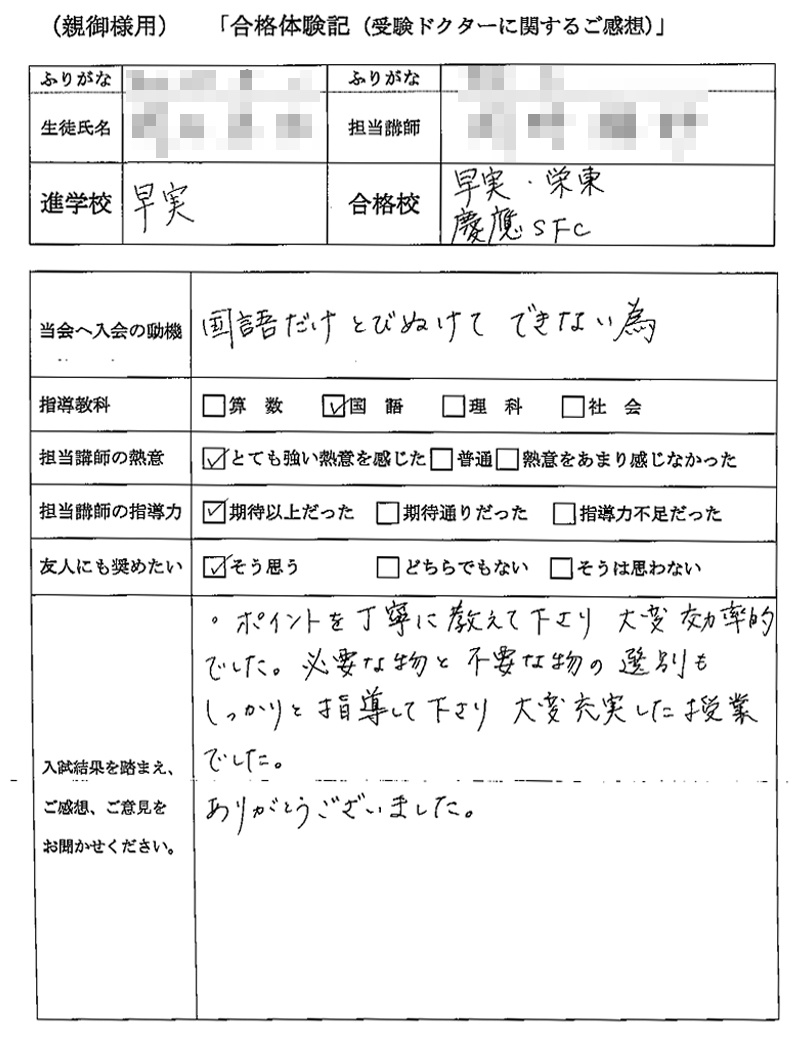 (親御様用) 「合格体験記(受験ドクターに関するご感想)」
ふりがな ふりがな
生徒氏名 担当講師
進学校 早実 合格校 早実・栄東
慶應SFC
当会へ入会の動機 国語だけとびぬけて できない為
指導教科 □算 数 ☑国 語 □理 科 □社 会
担当講師の熱意 ☑とても強い熱意を感じた □普通 □熱意をあまり感じなかった
担当講師の指導力 ☑期待以上だった □期待通りだった □指導力不足だった
友人にも奨めたい ☑そう思う □どちらでもない □そうは思わない
入試結果を踏まえ、
ご感想、ご意見を
お聞かせください。
。ポイントを丁寧に教えて下さり 大変効率的
でした。必要な物と不要な物の選別も
しっかりと指導して下さり 大変充実した授業
でした。
ありがとうございました。